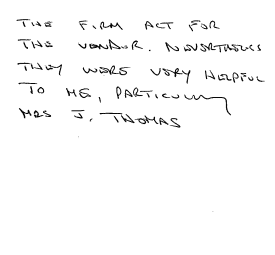 THE FIRM ACT FOR
THE VENDOR. NEVERTHELESS
THEY WERE VERY HELPFUL
TO ME, PARTICULARLY
MRS J. THOMAS